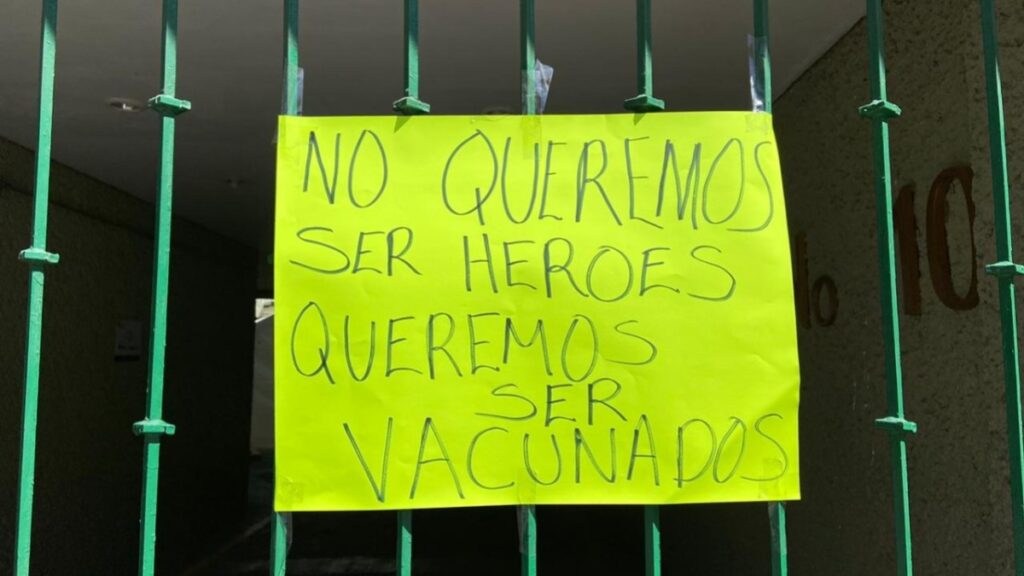 NO QUEREMOS
SER HEROES
QUEREMOS
SER
VACUNADOS
10